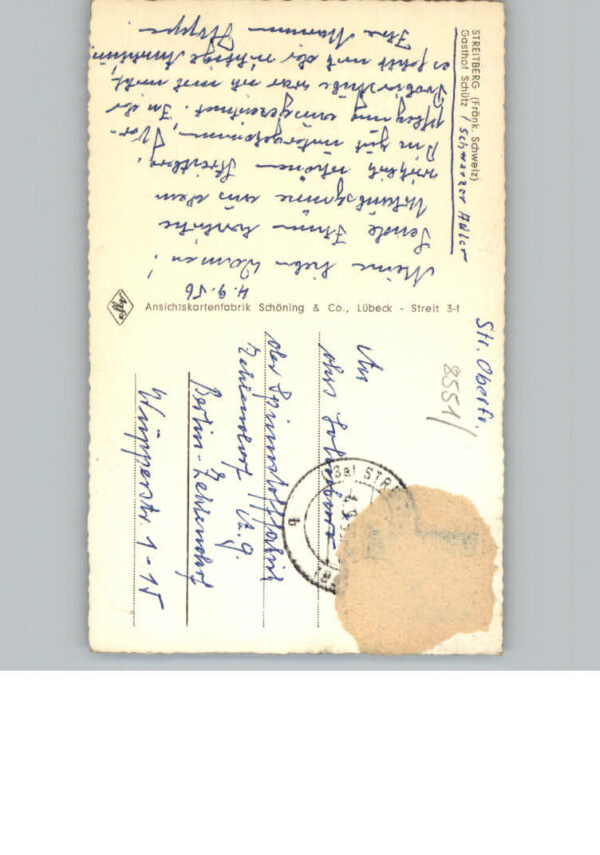 STREITBERG (Fränk. Schweiz)
Gasthof Schütz / Schwarzer Adler
4.9.56
Meine lieben Damen!
Sende Ihnen herzliche
Urlaubsgrüsse aus dem
wirklich schönen Streitberg.
Bin gut untergekommen, Ver-
pflegung ausgezeichnet. In der
Probierstube war ich noch nicht,
es fehlt mir die richtige
Ihre
Agfa
Ansichtskartenfabrik Schöning & Co., Lübeck - Streit 3-f
Str. Oberfr.
8551/
An
das Lohnbüro
der Spinnstofffabrik
Zehlendorf A.G.
Berlin-Zehlendorf
Wupperstr. 1-15
STR
b